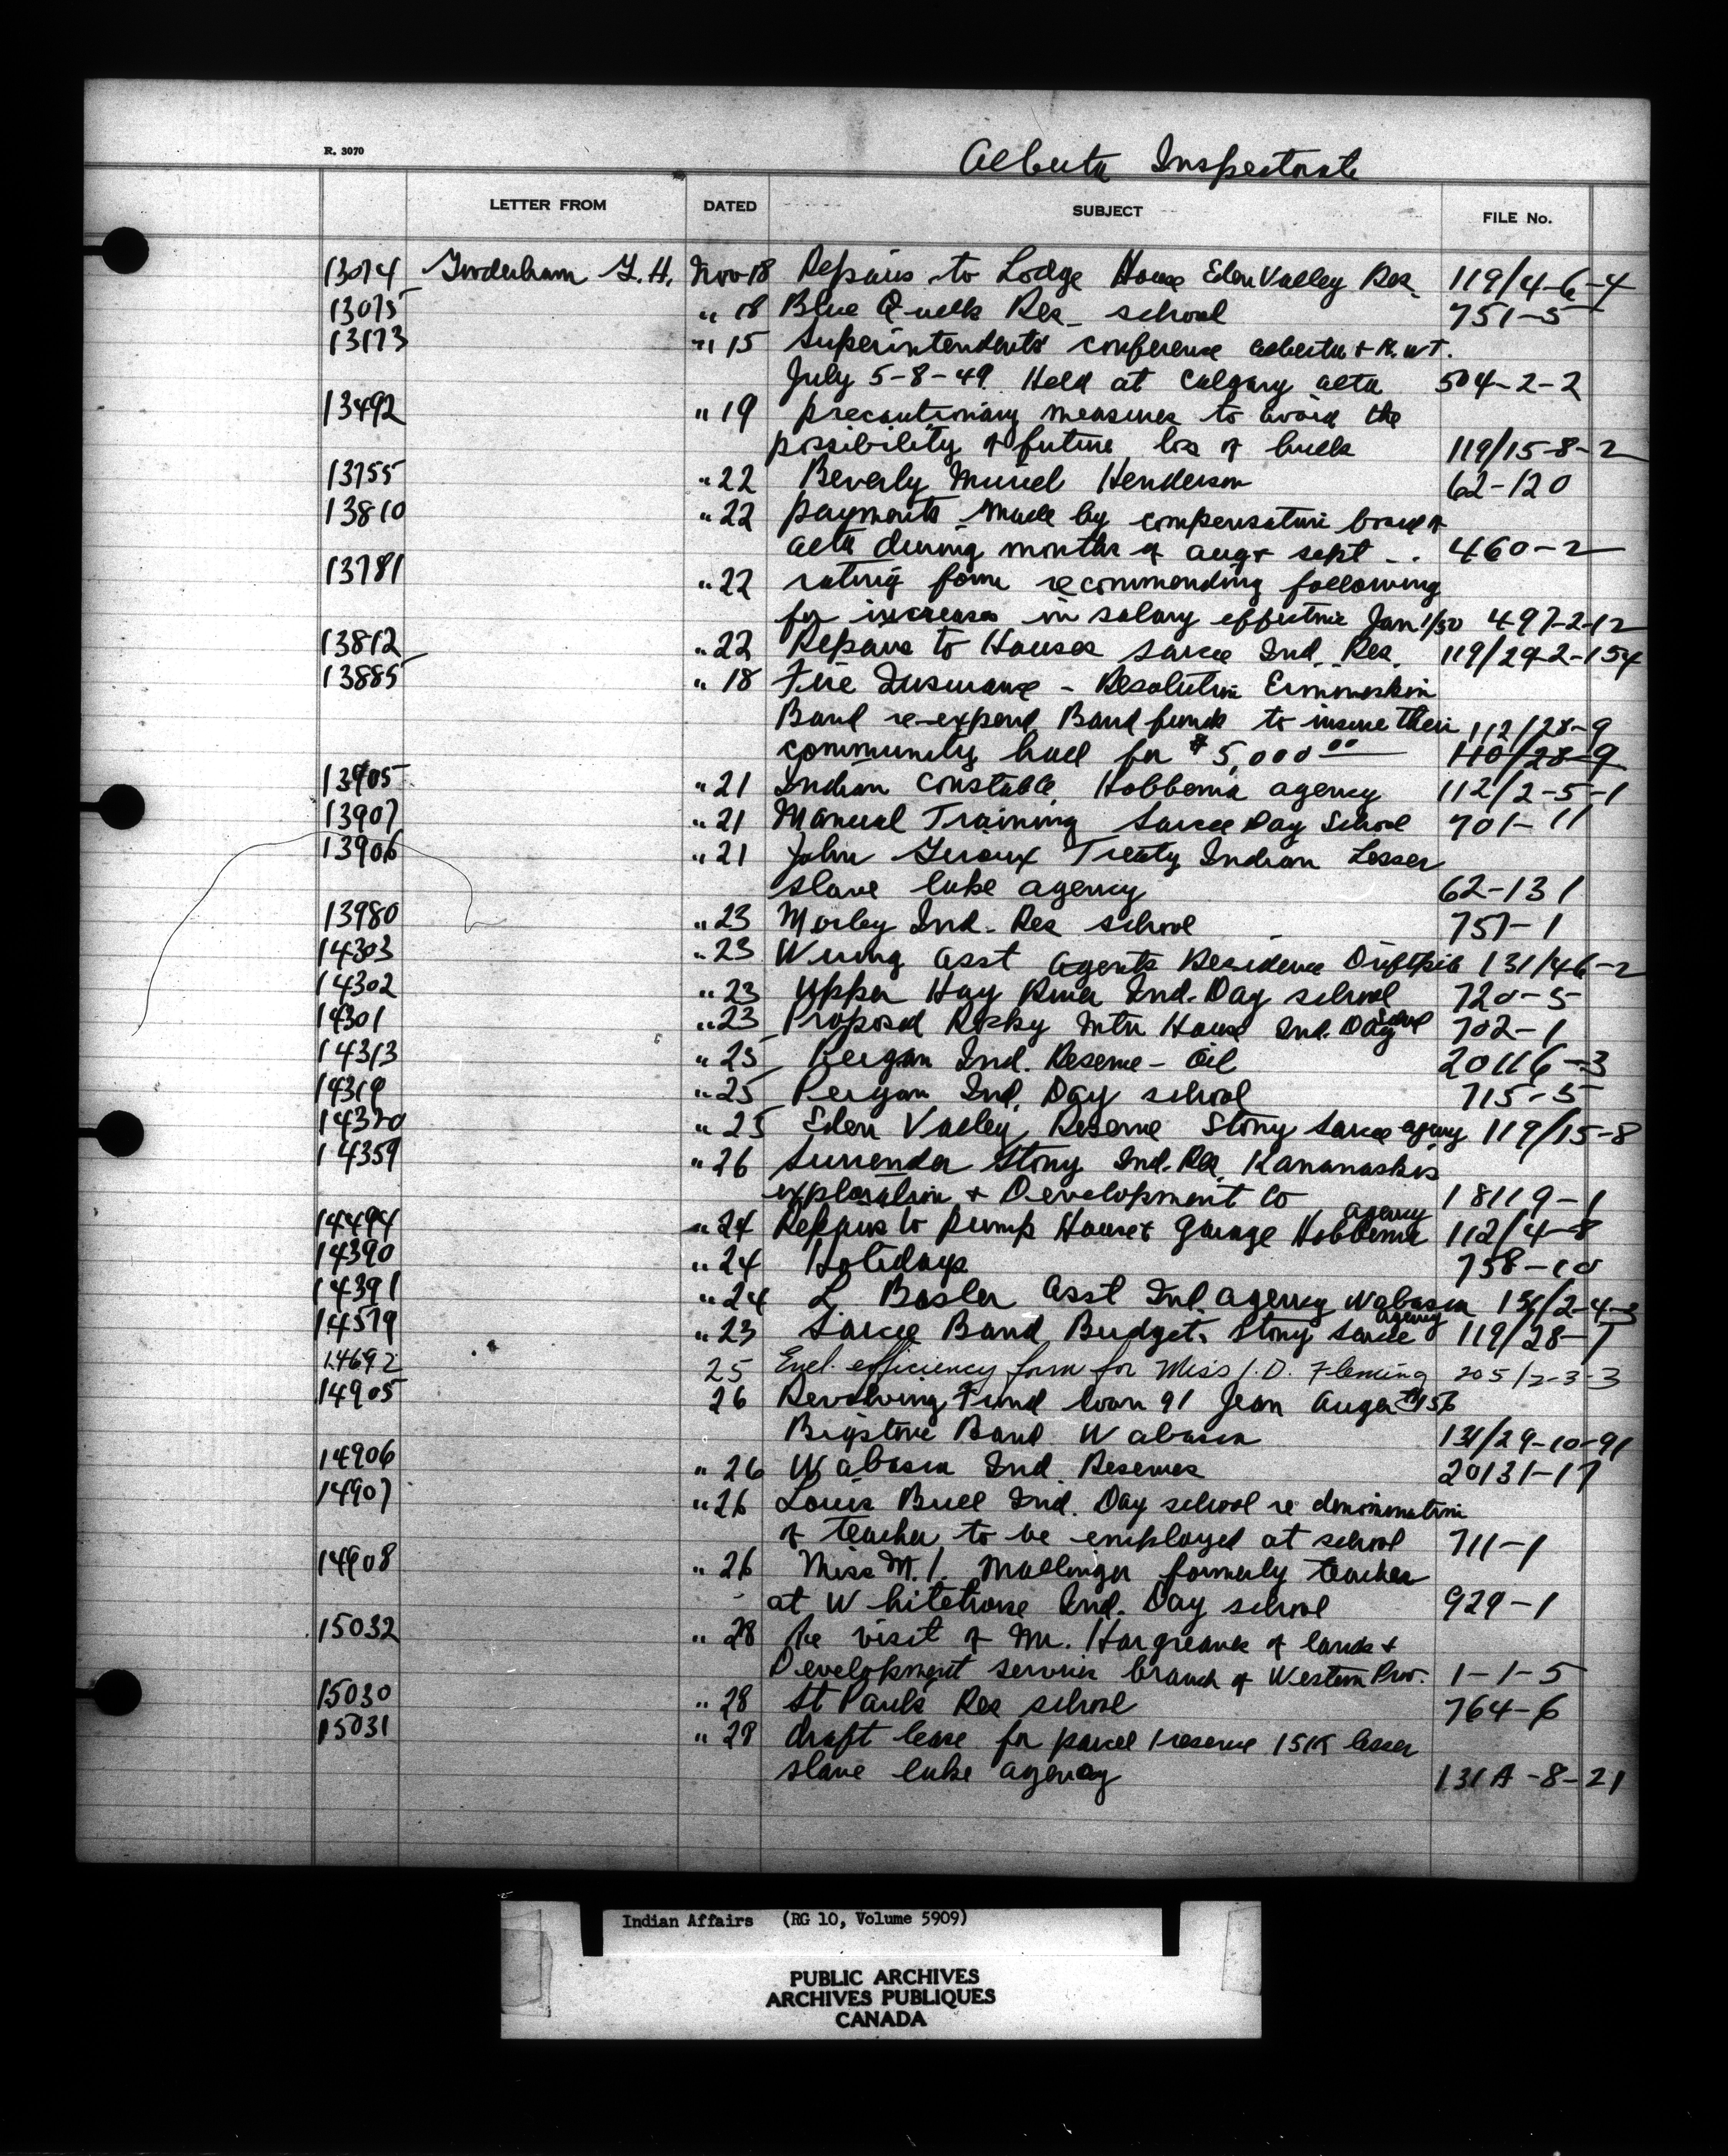 R. 3070
Alberta Inspectorate
LETTER FROM DATED SUBJECT FILE No.
13074 Gooderham G. H. Nov 18 Repairs to Lodge House Eden Valley Res. 119/4-6-4
13075 " 18 Blue Quills Res. school 751-5
13173 " 15 Superintendents' conference Alberta & N.W.T.
July 5-8-49. Held at Calgary alta 504-2-2
13492 " 19 precautionary measures to avoid the
possibility of future loss of bulls 119/15-8-2
13755 " 22 Beverly Muriel Henderson 62-120
13810 " 22 payments made by compensation board of
alta during months of aug & sept -. 460-2
13781 " 22 rating form recommending following
for increases in salary effective Jan 1/50 497-2-12
13812 " 22 Repairs to Houses Sarcee Ind. Res. 119/29-2-154
13885 " 18 Fire Insurance - Resolution Ermineskin
Band re-expend Band funds to insure their 112/28-9
community hall for $5,000 00 110/28-9
13905 " 21 Indian Constable Hobbema agency 112/2-5-1
13907 " 21 Manual Training Sarcee Day School 701-11
13906 " 21 John Giroux Treaty Indian Lesser
slave lake agency 62-131
13980 " 23 Morley Ind. Res school 757-1
14303 " 23 Wiring asst agents Residence Driftpile 131/46-2
14302 " 23 Upper Hay River Ind. Day school 720-5
14301 " 23 Proposed Rocky Mtn House Ind. Day school 702-1
14313 " 25 Peigan Ind. Reserve - Oil 20116-3
14319 " 25 Peigan Ind. Day school 715-5
14320 " 25 Eden Valley Reserve Stony Sarcee agency 119/15-8
14359 " 26 Surrender Stony Ind. Res. Kananaskis
exploration & Development Co 18119-1
14494 " 24 Repairs to Pump House & Garage Hobbema agency 112/4-8
14390 " 24 Holidays 758-10
14391 " 24 L. Basler Asst Ind. agency Wabasca 131/2-4-3
14579 " 23 Sarcee Band Budget. Stony Sarcee agency 119/28-7
14692 25 Encl. efficiency form for Miss J. D. Fleming 205/2-3-3
14905 26 Revolving Fund loan 91 Jean Auger #156
Bigstone Band Wabasca 131/29-10-91
14906 " 26 Wabasca Ind. Reserves 20131-17
14907 " 26 Louis Bull Ind. Day school re denomination
of teacher to be employed at school 711-1
14908 " 26 Miss M. I. Mallinger formerly teacher
at Whitehorse Ind. Day school 929-1
15032 " 28 Re visit of Mr. Hargreaves of lands &
Development services branch of Western Prov. 1-1-5
15030 " 28 St Pauls Res school 764-6
15031 " 28 draft lease for parcel 1 reserve 15K lesser
slave lake agency 131A-8-21
Indian Affairs (RG 10, Volume 5909)
PUBLIC ARCHIVES
ARCHIVES PUBLIQUES
CANADA